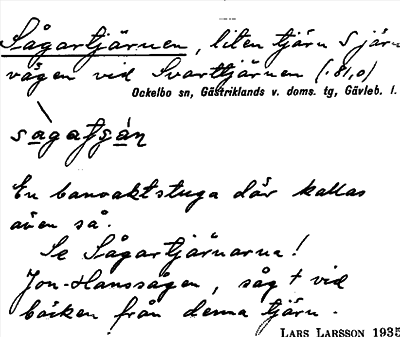 Sågartjärnen, liten tjärn S järn
vägen vid Svarttjärnen (.81,0)
Ockelbo sn, Gästriklands v. doms. tg, Gävleb. l.
En banvaktstuga där kallas
även så.
Se Sågartjärnarna!
Jon-Hanssågen, såg † vid
bäcken från denna tjärn.
LARS LARSSON 1935